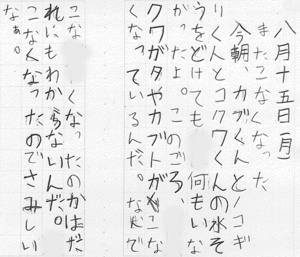 八月十五日(月)
またこなくなった
今朝、カブくんとノコギ
りくんとコクワくんの水そ
うをどけても、何もいな
かったよ。このごろ、
クワガタやカブトがこな
くなっているんだ。なんで
こなくなったのかはだ
れにもわからないんだ。
こなくなったのでさみしい
なぁ。